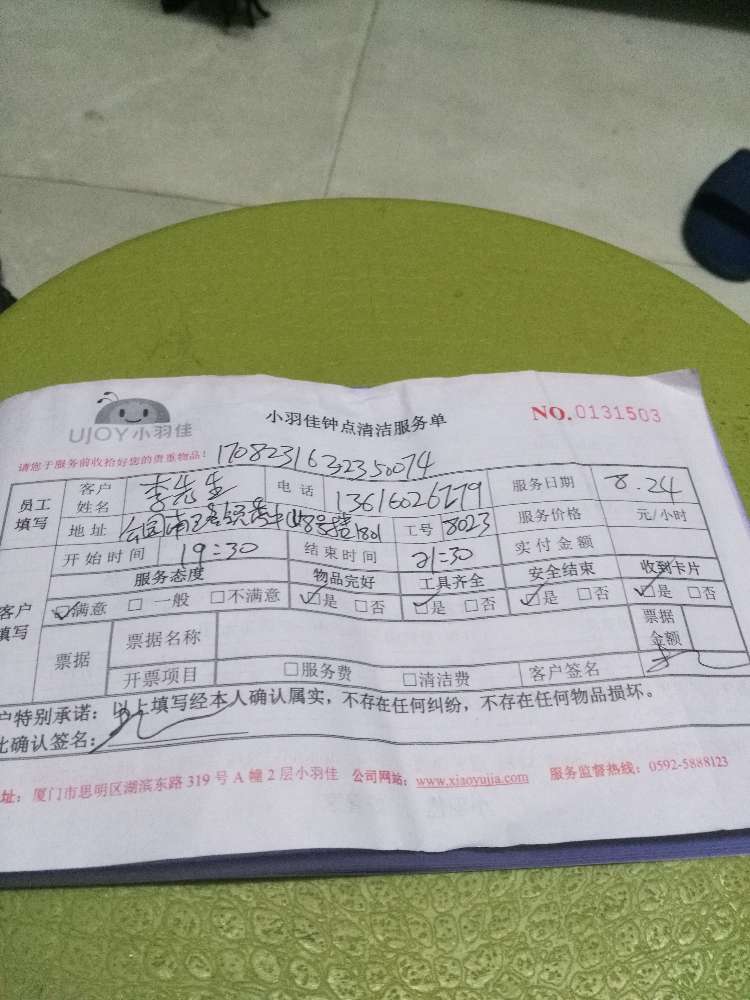 UJOY小羽佳
小羽佳钟点清洁服务单
NO.0131503
请您于服务前收拾好您的贵重物品！
1708231632350074
员工填写 客户姓名 李先生 电话 13616026279 服务日期 8.24
地址 1801 工号 8023 服务价格 元/小时
开始时间 19:30 结束时间 21:30 实付金额
客户填写 服务态度 物品完好 工具齐全 安全结束 收到卡片
☑满意 □一般 □不满意 ☑是 □否 ☑是 □否 ☑是 □否 ☑是 □否
票据 票据名称 票据金额
开票项目 □服务费 □清洁费 客户签名
户特别承诺：以上填写经本人确认属实，不存在任何纠纷，不存在任何物品损坏。
此确认签名：
址：厦门市思明区湖滨东路 319 号 A 幢 2 层小羽佳 公司网站：www.xiaoyujia.com 服务监督热线：0592-5888123